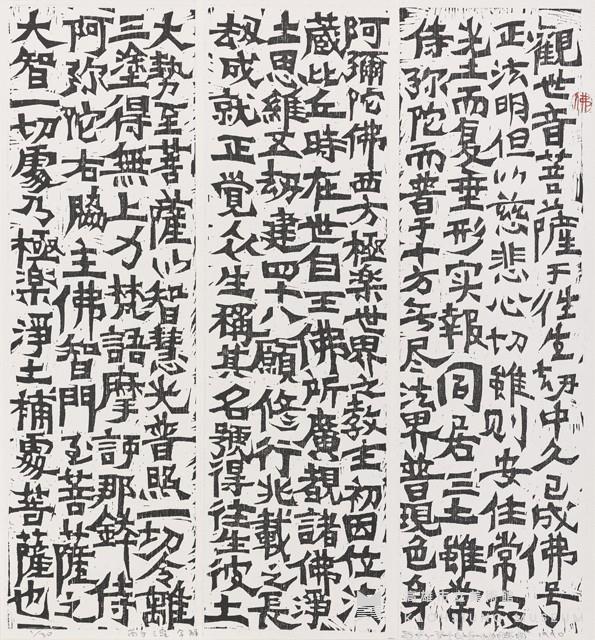 觀世音菩薩于往生劫中久已成佛号
正法明但以慈悲心切雖則安住常寂
光土而复垂形实報同居三土雖常
侍弥陀而普于十方无尽法界普現色身
佛
阿彌陀佛西方極楽世界之教主初因位法
蔵比丘時在世自王佛所廣覩諸佛淨
土思維五劫建四十八願修行兆載之長
劫成就正覚众生稱其名號得往生彼土
大勢至菩薩以智慧光普照一切令離
三塗得無上力梵語摩訶那鉢
阿弥陀右脇主佛智門至菩薩之
大智一切處乃極楽淨土補處菩薩也